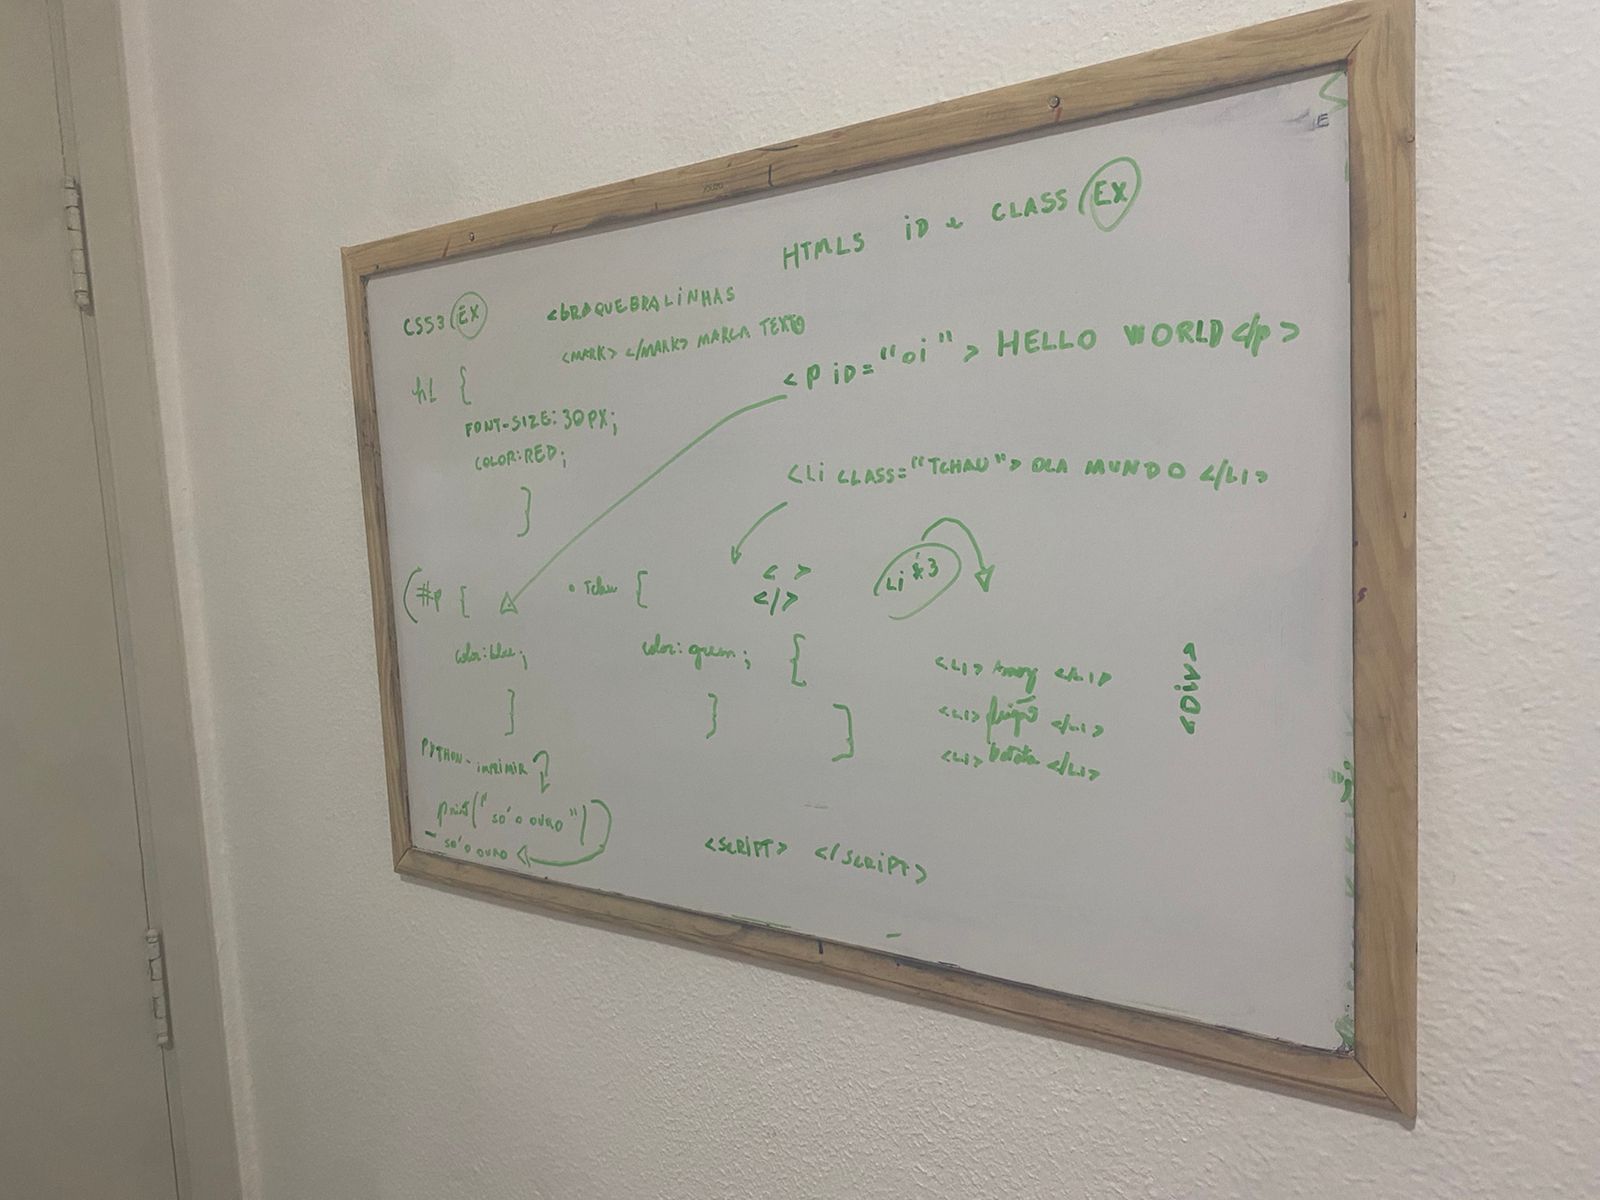 HTML5 iD e CLASS (EX)
CSS3 (EX)
<br> QUEBRA LiNHAS
<MARK> </MARK> MARCA TEXTO
h1 {
FONT-SIZE: 30PX;
COLOR: RED;
}
<P iD="oi"> HELLO WORLD </p>
<Li CLASS="TCHAU"> OLA MUNDO </Li>
#p {
color: blue;
}
. Tchau {
color: green;
}
< >
</>
{
}
Li*3
<Li> Arroz </Li>
<Li> feijão </Li>
<Li> batata </Li>
<Div>
PYTHON - iMPRiMiR
print("SÓ O OURO")
- SÓ O OURO
<SCRiPT> </SCRiPT>
E